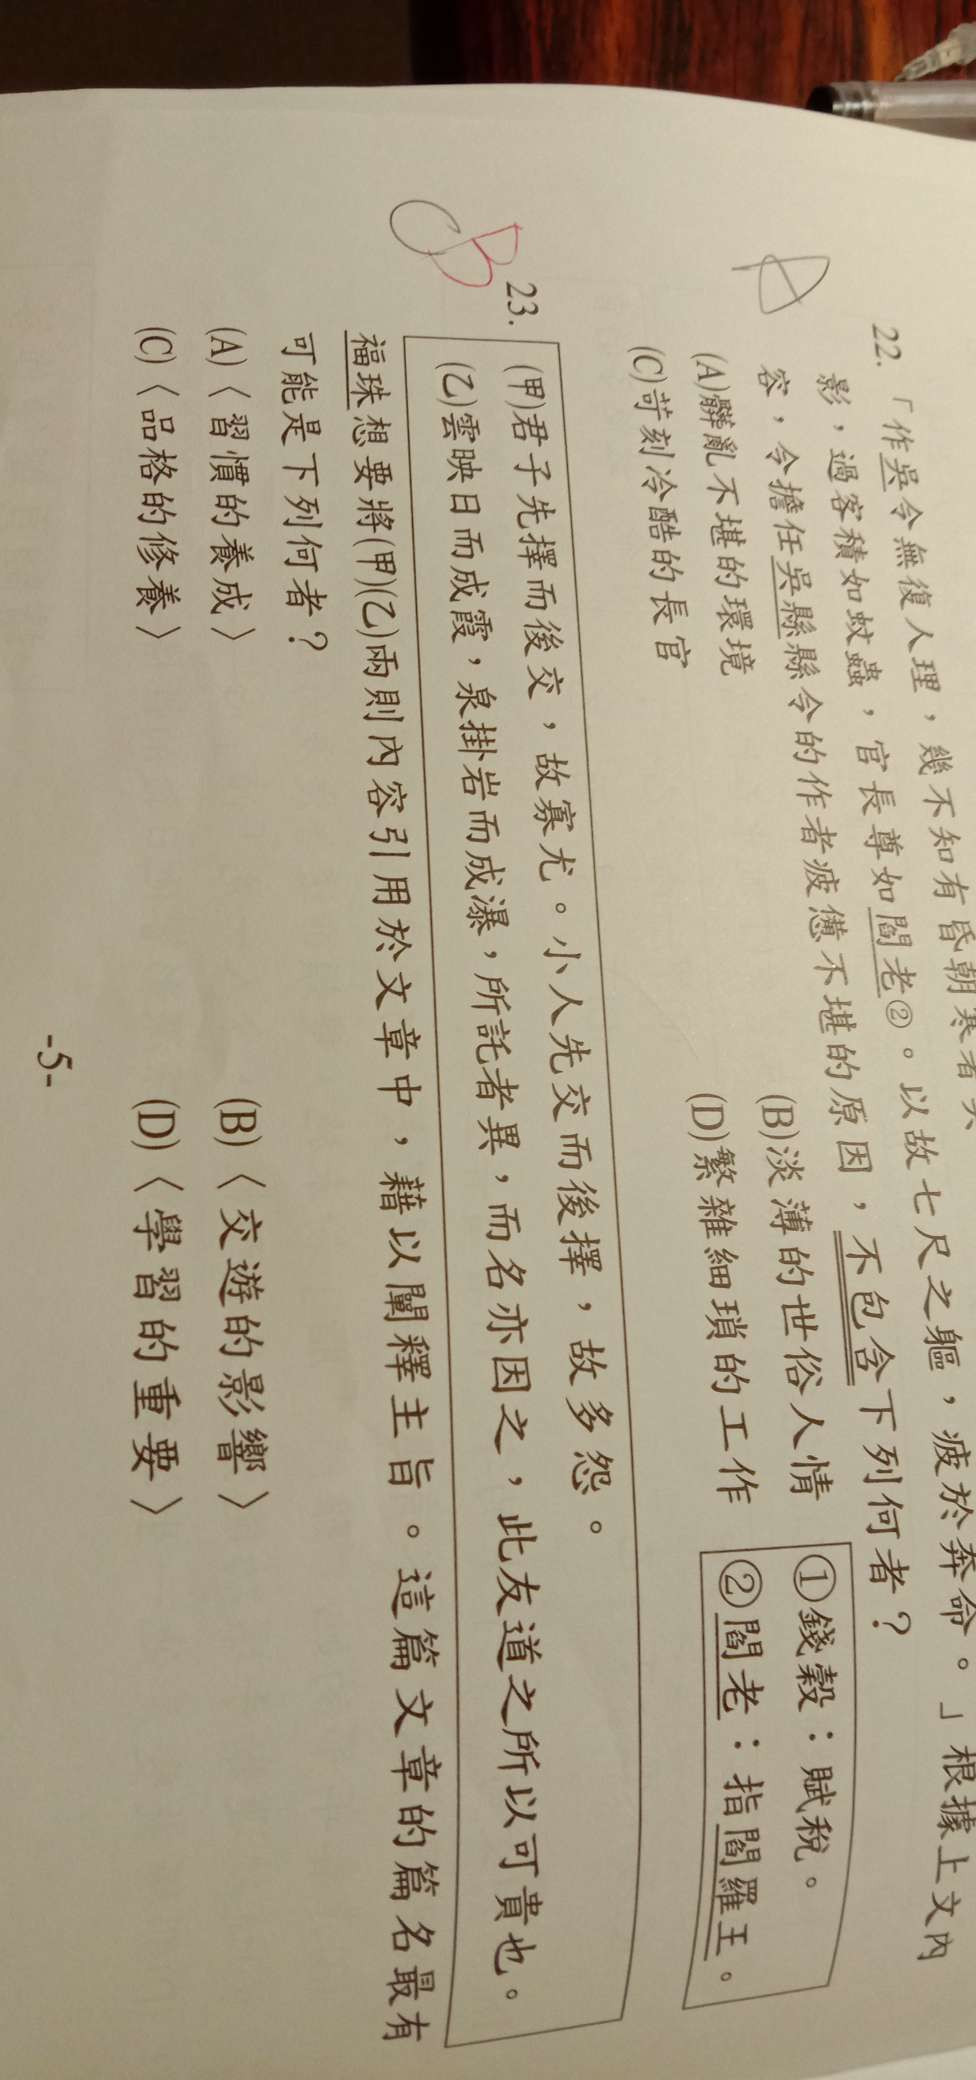 22. 「作吳令無復人理，幾不知有昏朝寒暑矣
影，過客積如蚊蟲，官長尊如閻老②。以故七尺之軀，疲於奔命。」根據上文內
容，令擔任吳縣縣令的作者疲憊不堪的原因，不包含下列何者？
A
(A)髒亂不堪的環境 (B)淡薄的世俗人情
(C)苛刻冷酷的長官 (D)繁雜細瑣的工作
①錢穀：賦稅。
②閻老：指閻羅王。
C B
23. (甲)君子先擇而後交，故寡尤。小人先交而後擇，故多怨。
(乙)雲映日而成霞，泉掛岩而成瀑，所託者異，而名亦因之，此友道之所以可貴也。
福珠想要將(甲)(乙)兩則內容引用於文章中，藉以闡釋主旨。這篇文章的篇名最有
可能是下列何者？
(A)〈習慣的養成〉 (B)〈交遊的影響〉
(C)〈品格的修養〉 (D)〈學習的重要〉
-5-